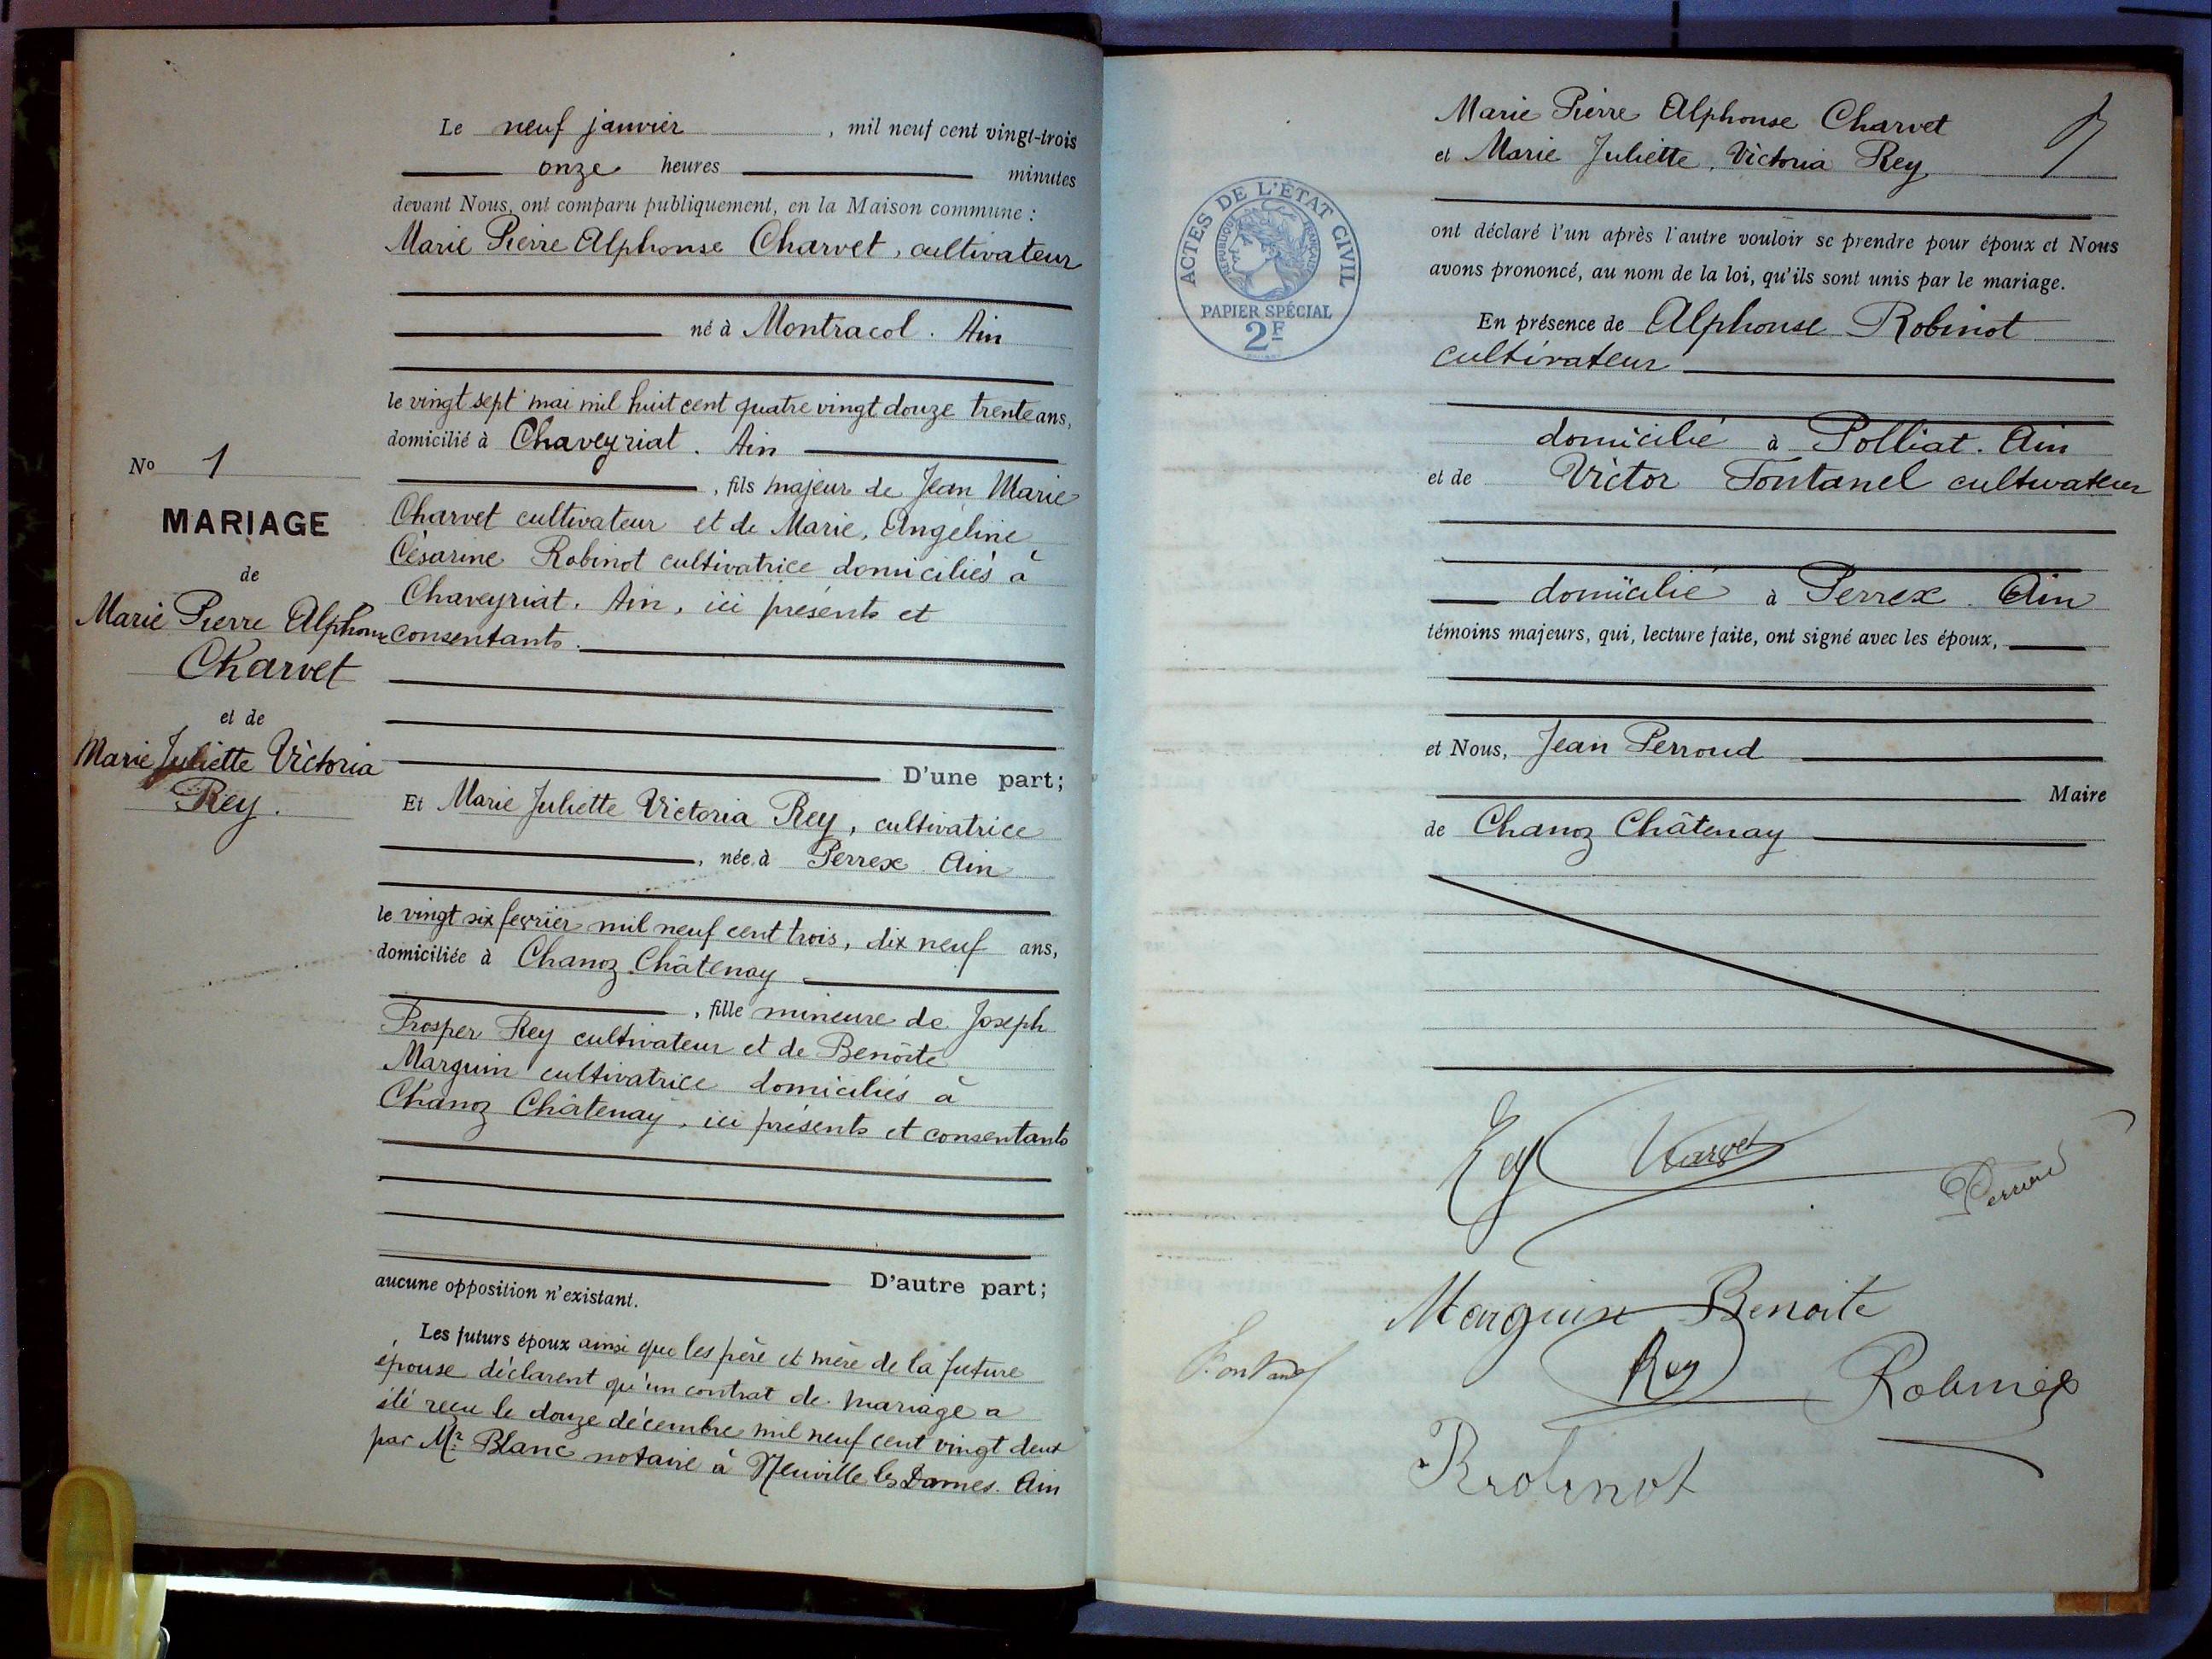 Le neuf janvier , mil neuf cent vingt-trois
onze heures minutes
devant Nous, ont comparu publiquement, en la Maison commune :
Marie Pierre Alphonse Charvet, cultivateur
né à Montracol. Ain
le vingt sept mai mil huit cent quatre vingt douze trente ans,
domicilié à Chaveyriat. Ain
, fils majeur de Jean Marie
Charvet cultivateur et de Marie, Angéline
Césarine Robinot cultivatrice domiciliés à
Chaveyriat. Ain, ici présents et
consentants.
D'une part;
Et Marie Juliette Victoria Rey, cultivatrice
, née à Perrex Ain
le vingt six fevrier mil neuf cent trois, dix neuf ans,
domiciliée à Chanoz Châtenay
, fille mineure de Joseph
Prosper Rey cultivateur et de Benôite
Marguin cultivatrice domiciliés à
Chanoz Châtenay, ici présents et consentants
D'autre part;
aucune opposition n'existant.
Les futurs époux ainsi que les père et mère de la future
épouse déclarent qu'un contrat de mariage a
été reçu le douze décembre mil neuf cent vingt deux
par Mr Blanc notaire à Neuville les Dames. Ain
No 1
MARIAGE
de
Marie Pierre Alphonse
Charvet
et de
Marie Juliette Victoria
Rey.
ACTES DE L'ÉTAT CIVIL
RÉPUBLIQUE FRANÇAISE
PAPIER SPÉCIAL
2F
Marie Pierre Alphonse Charvet
et Marie Juliette, Victoria Rey
ont déclaré l'un après l'autre vouloir se prendre pour époux et Nous
avons prononcé, au nom de la loi, qu'ils sont unis par le mariage.
En présence de Alphonse Robinot
cultivateur
domicilié à Polliat. Ain
et de Victor Fontanel cultivateur
domicilié à Perrex. Ain
témoins majeurs, qui, lecture faite, ont signé avec les époux,
et Nous, Jean Perroud
Maire
de Chanoz Châtenay
Rey Charvet
Perroud
Marguin Benoite
Fontanel
Rey
Robinot
Robinot